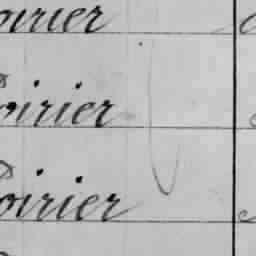 oirier
Poirier
Poirier